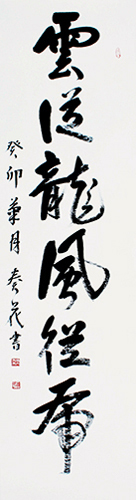 雲従龍風従虎
癸卯葉月春花書